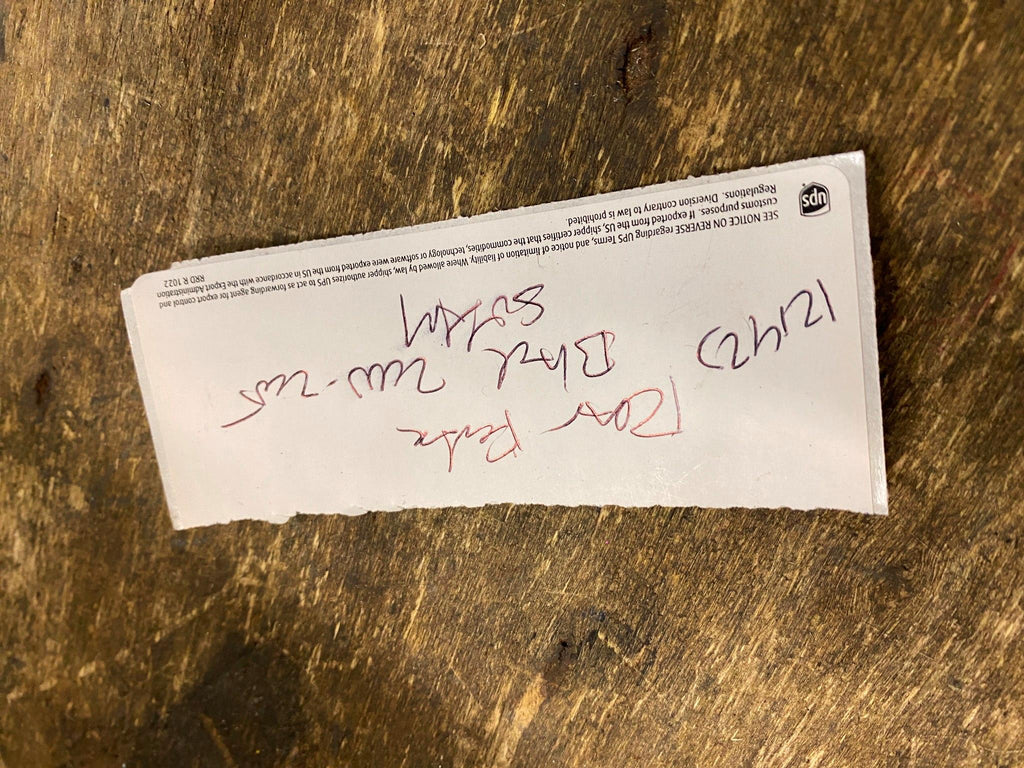 2000-2005
SEE NOTICE ON REVERSE regarding UPS Terms, and notice of limitation of liability. Where allowed by law, shipper authorizes UPS to act as forwarding agent for export control and
customs purposes. If exported from the US, shipper certifies that the commodities, technology or software were exported from the US in accordance with the Export Administration
Regulations. Diversion contrary to law is prohibited.
RRD R 1022
ups